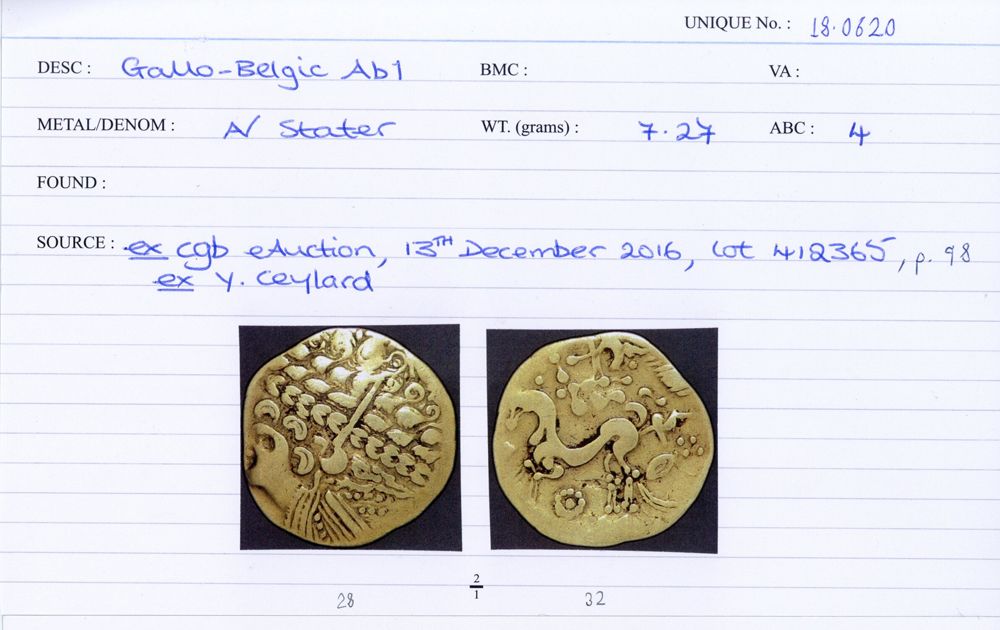 UNIQUE No. : 18.0620
DESC : Gallo-Belgic Ab1 BMC : VA :
METAL/DENOM : A/ Stater WT. (grams) : 7.27 ABC : 4
FOUND :
SOURCE : ex cgb eAuction, 13TH December 2016, lot 412365, p. 98
ex Y. Ceylard
2/1
28 32